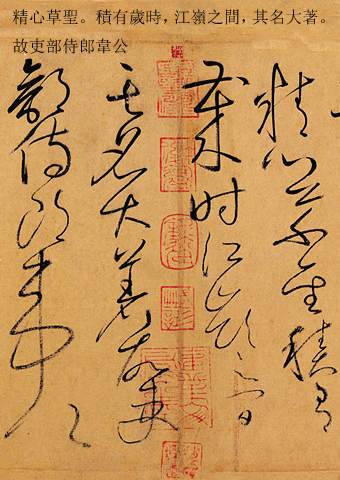 精心草聖。積有歲時，江嶺之間，其名大著。
故吏部侍郎韋公
精心草聖積有
歲時江嶺之間
其名大著故吏
部侍郎韋公